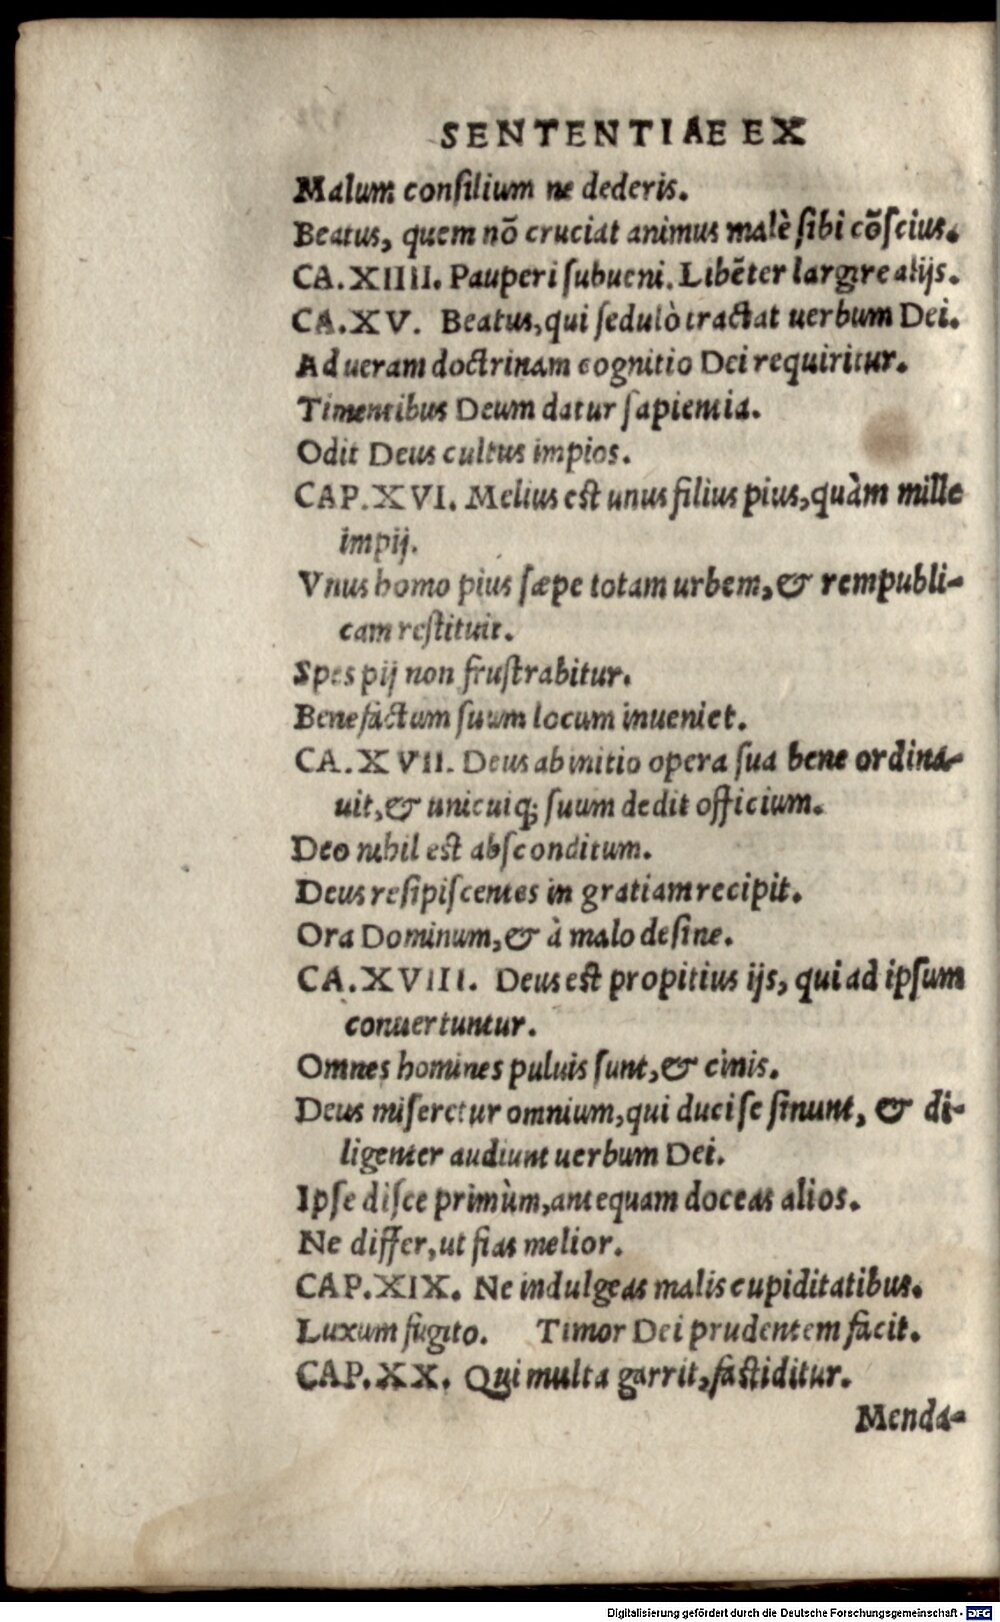 SENTENTIAE EX
Malum consilium ne dederis.
Beatus, quem nō cruciat animus malè sibi cōscius.
CA. XIIII. Pauperi subueni. Libēter largire alijs.
CA. XV. Beatus, qui sedulò tractat uerbum Dei.
Ad ueram doctrinam cognitio Dei requiritur.
Timentibus Deum datur sapientia.
Odit Deus cultus impios.
CAP. XVI. Melius est unus filius pius, quàm mille
impij.
Vnus homo pius sæpe totam urbem, & rempubli-
cam restituit.
Spes pij non frustrabitur.
Benefactum suum locum inueniet.
CA. XVII. Deus ab initio opera sua bene ordina-
uit, & unicuiq; suum dedit officium.
Deo nihil est absconditum.
Deus resipiscentes in gratiam recipit.
Ora Dominum, & à malo desine.
CA. XVIII. Deus est propitius ijs, qui ad ipsum
conuertuntur.
Omnes homines puluis sunt, & cinis.
Deus miseretur omnium, qui duci se sinunt, & di-
ligenter audiunt uerbum Dei.
Ipse disce primùm, antequam doceas alios.
Ne differ, ut fias melior.
CAP. XIX. Ne indulgeas malis cupiditatibus.
Luxum fugito. Timor Dei prudentem facit.
CAP. XX. Qui multa garrit, fastiditur.
Menda-
Digitalisierung gefördert durch die Deutsche Forschungsgemeinschaft - DFG